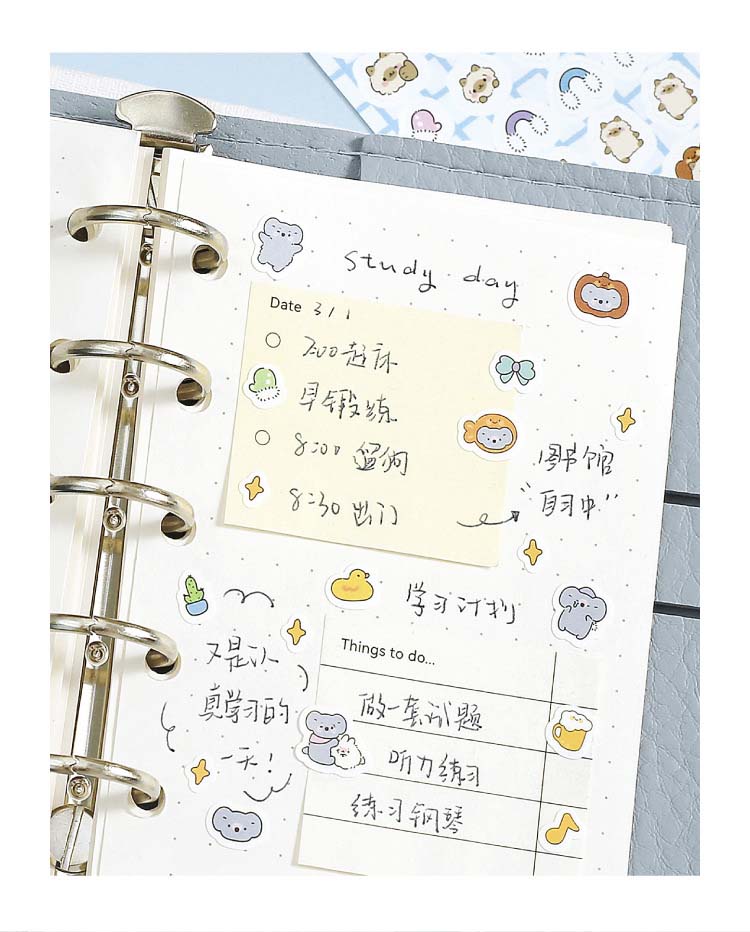 study day
Date 3/1
7:00 起床
早锻炼
8:00 遛狗
8:30 出门
图书馆
自习中"
学习计划
又是认
真学习的
一天!
Things to do...
做一套试题
听力练习
练习钢琴